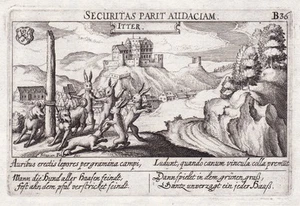 SECURITAS PARIT AUDACIAM. B36
ITTER.
Auribus erectis lepores per gramina campi, Ludunt, quando canum vincula colla premunt.
Wann die Hund aller Haasen feindt, Dann spielt in dem grünen graß,
fest ahn dem pfal verstricket seindt. Gantz unverzagt ein jeder Haaß.